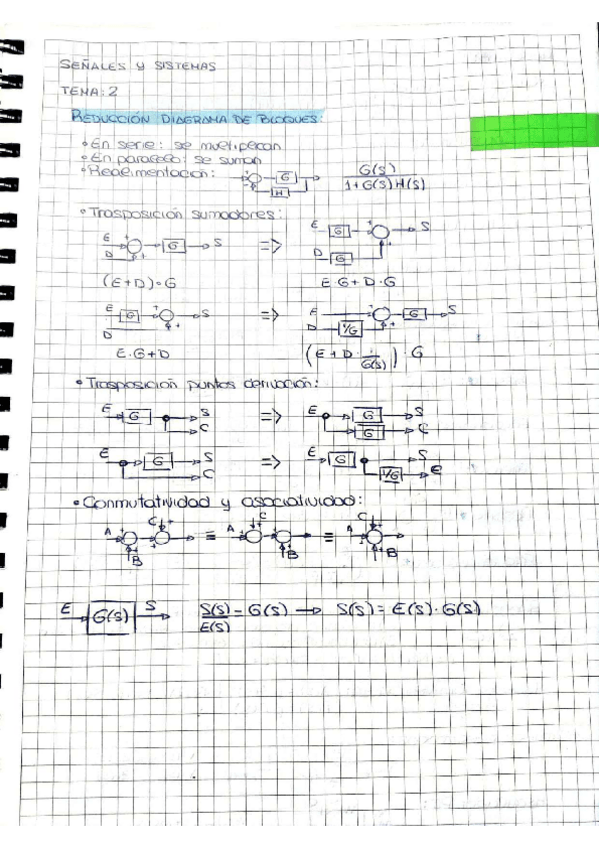 SEÑALES Y SISTEMAS
TEMA: 2
REDUCCIÓN DIAGRAMA DE BLOQUES:
• En serie: se multiplican
• En paralelo: se suman
• Realimentación: + - G H G(S) / 1+G(S)H(S)
• Trasposición sumadores:
E + D + G S => E G + S D G +
(E+D)·G E·G+D·G
E G + S D + => E + G S D 1/G +
E·G+D (E+D·1/G(S))·G
• Trasposición puntos derivación:
E G S C => E G S G C
E G S C => E G S 1/G E
• Conmutatividad y asociatividad:
A + C + + B ≡ A + C + + B ≡ A + C + + B
E G(S) S S(S)/E(S) = G(S) → S(S) = E(S)·G(S)